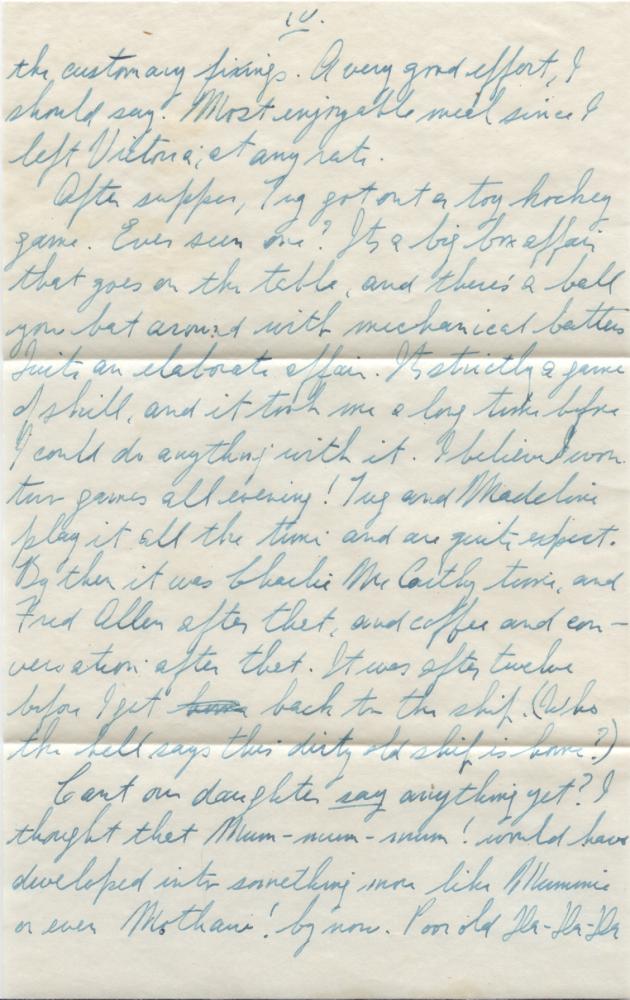 IV.
the customary fixings. A very good effort, I
should say. Most enjoyable meal since I
left Victoria, at any rate.
After supper, Tug got out a toy hockey
game. Ever seen one? Its a big box affair
that goes on the table, and there's a ball
you bat around with mechanical batters
Quite an elaborate affair. It's strictly a game
of skill, and it took me a long time before
I could do anything with it. I believe I won
two games all evening! Tug and Madeline
play it all the time and are quite expert.
By then it was Charlie McCarthy time, and
Fred Allen after that, and coffee and con-
versation after that. It was after twelve
before I got home back to the ship. (Who
the hell says this dirty old ship is home?)
Cant our daughter say anything yet? I
thought that Mum-mum-mum! would have
developed into something more like Mummie
or even Mothaw! by now. Poor old